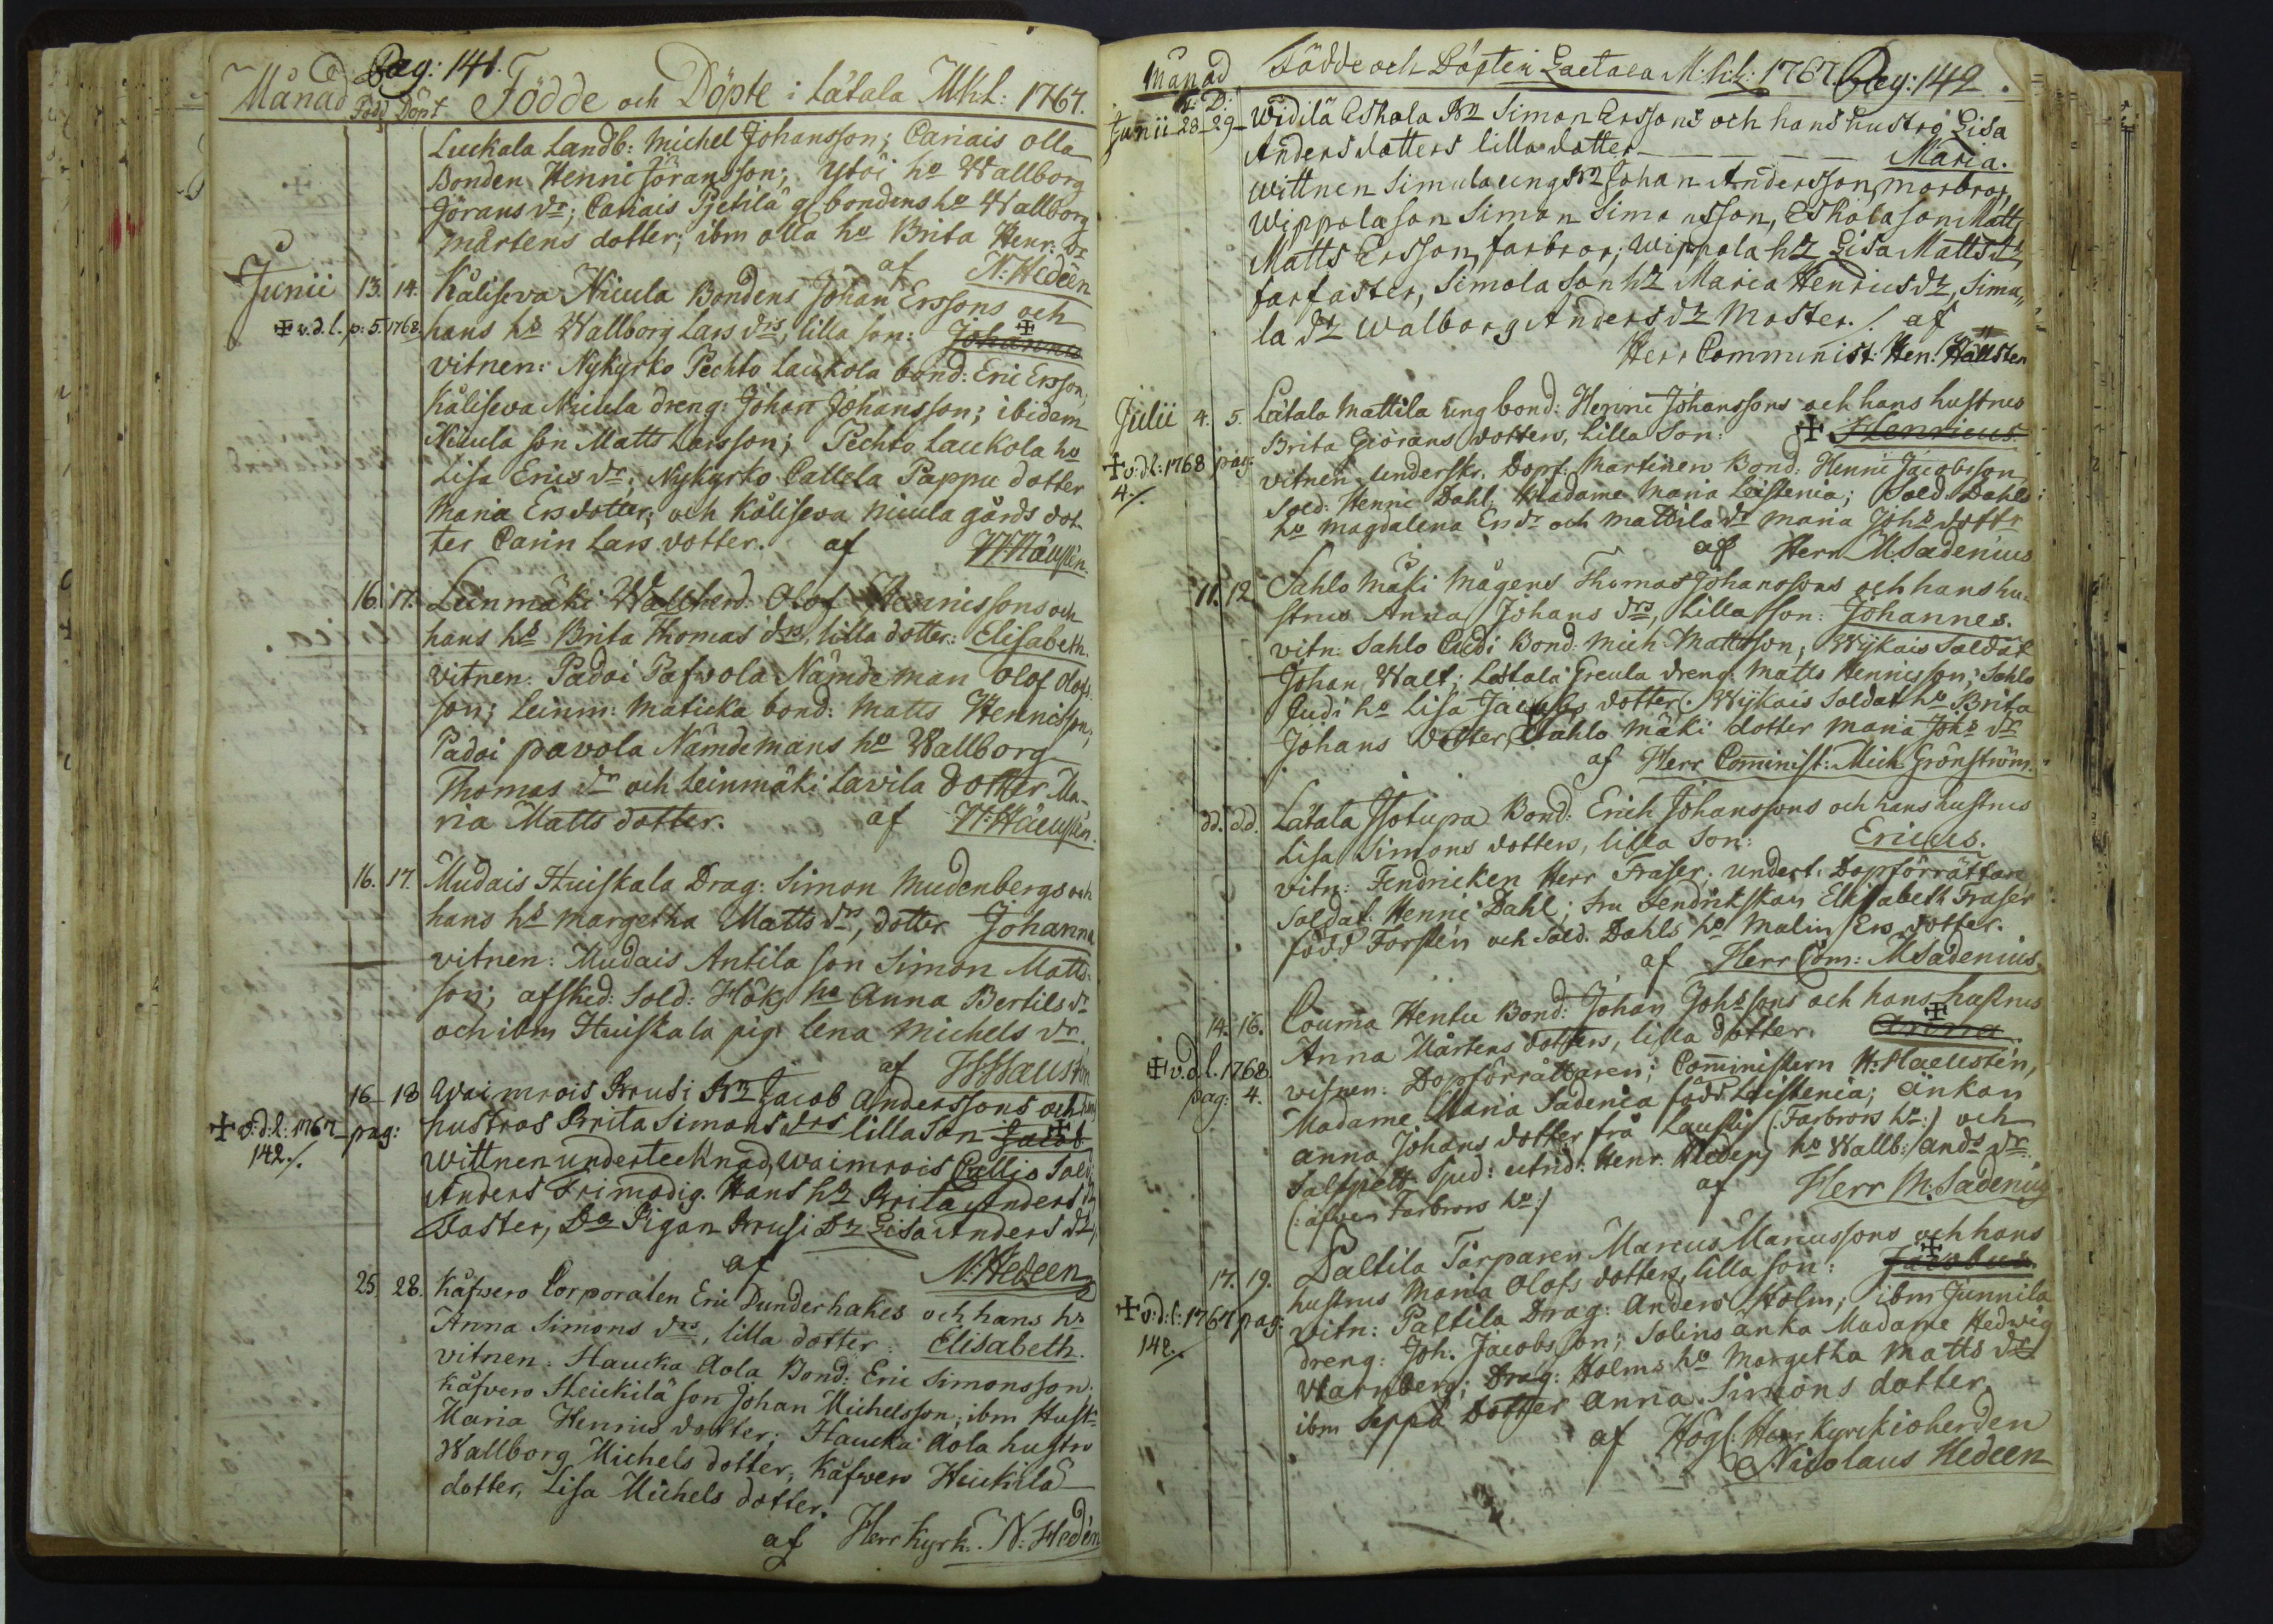 Pag: 141.
Månad Född Döpt Födde och Döpte i Låtala Mkl: 1767.
Luckala Landb: Michel Johansson; Cariais olla
Bonden Henric Jöransson; Ytöi ho Wallborg
Jörans dr; Cariais Pjetilä g. bondens ho Wallborg
mårtens dotter; ibm olla ho Brita Henr: dr
af N: Hedeen
Junii 13. 14. Kåliseva Nicula Bondens Johan Erssons och
✠ v.d.l. p: 5. 1768. hans ho Wallborg Lars drs, lilla son: Johannes ✠
vitnen: Nykyrko Pechto Laukola bond: Eric Ersson,
Kåliseva Nicula dreng: Johan Johansson; ibidem
Nicula son Matts Larsson; Pechto Laukola ho
Lisa Erics dr; Nykyrko Callela Pappu dotter
Maria Ers dotter; och Kåliseva Nicula gårds dot
ter Carin Lars dotter. af
16. 17. Leinmäki Wallherd: Olof Hennissons och
hans ho Brita Thomas drs, lilla dotter: Elisabeth.
vitnen: Padoi Pafwola Nämde man Olof Olofs
son; Leinm: Maticka bond: Matts Hennisson;
Padoi pavola Nämdemans ho Wallborg
Thomas dr och Leinmäki Lavila dotter Ma-
ria Matts dotter. af
16. 17. Mudais Huiskala Drag: Simon Mudenbergs och
hans ho Margetha Matts dr, dotter Johanna
vitnen: Mudais Antila son Simon Matts-
son; afsked: Sold: Hök, ho Anna Bertils dr
och ibm Huiskala pig: Lena Michels dr.
af
16 18 Waimrois Krusi Br Jacob Anderssons och hans
✠ v:d:l: 1767 pag: hustros Brita Simons drs lilla Son Jacob ✠
142./. Wittnen undertecknad, Waimrois Callio Sold:
Anders Frimodig. Hans hr Brita Anders dr
Faster, Do Pigan Krusi Dr Lisa Anders dr,
af N: Hedeen
25. 28. Kåfvero Corporalen Eric Dunderhakes och hans hr
Anna Simons drs, lilla dotter: Elisabeth.
vitnen: Haucka Aola Bond: Eric Simonsson.
Kåfvero Heickilä son Johan Michelsson; ibm Hust:
Maria Henrics dotter; Haucka Aola hustro
Wallborg Michels dotter, Kåfvero Heickilä
dotter, Lisa Michels dotter.
af Herr Kyrk. N: Hedén
Månad Födde och Döpte i Laetala M:k:l: 1767. Pag: 142.
F: D:
Junii 28 29 Widilä Eskola Br Simon Erssons och hans hustro Lisa
Andersdotters lilla dotter Maria.
Wittnen Simula ung Br Johan Andersson, morbror,
Wippola son Simon Simonsson, Eskola son Matts
Matts Ersson, farbror; Wippola hr Lisa Matts dr,
farfaster, Simola Son hr Maria Henrics dr, Simu
la dr Walborg Anders dr Moster./. af
Herr Comminist: Hen: Hällsten
Julii 4. 5. Låtala Mattila ung bond: Henric Johanssons och hans hustrus
Brita Giörans dotters, lilla Son: ✠ Henricus.
✠ v:d:l: 1768 pag: vitnen underskr. Dopf: Martinen Bond: Henric Jacobsson
4./. Sold: Henric Dahl: Madame Maria Leistenia; Sold: Dahls
ho Magdalena Er dr och Mattila dr Maria Johs dottr
af Herr M. Sadenius
11. 12. Sahlo Mäki Mågens Thomas Johanssons och hans hu-
strus Anna Johans drs, lilla son: Johannes.
vitn: Sahlo Cudi Bond: Mich Mattsson; Wijkais Soldat
Johan Walt; Låtala Greula dreng Matts Hennisson; Sahlo
Cudi ho Lisa Jacobs dotter; Wijkais Soldat ho Brita
Johans dotter, Sahlo Mäki dotter Maria Johs dr
af Herr Cominist: Mich Grönström.
dd. dd. Låtala Isotupa Bond: Erich Johanssons och hans hustrus
Lisa Simons dotters, lilla Son: Ericus.
vitn: Fendricken Herr Fraser; undert: Dopförrättare
Soldat: Henric Dahl; fru Fendrikskan Elisabeth Fraser
född Forstén och Sold. Dahls ho Malin Ers dotter.
af Herr Com: M Sadenius.
14. 16. Couma Hentu Bond: Johan Johssons och hans hustrus
Anna Mårtens dotters, lilla dotter. Anna ✠
✠ v.d.l. 1768 vitnen: Dopförrättaren; Cominstern H: Haellstén,
pag: 4. Madame Maria Sadenia född Leistenia; änkan
Anna Johans dotter frå (: Farbrors hr :) och
ho Wallb: Ands dr
(: äfven Farbrors ho :) af Herr M. Sadenius
17. 19. Paltila Torparen Marcus Marcussons och hans
hustrus Maria Olofs dotters, lilla son: Jacobus ✠
✠ v:d:l: 1767 pag: vitn: Paltila Drag: Anders Holm; ibm Junnila
142./. dreng: Joh. Jacobsson; Solins änka Madame Hedwig
Warnberg; Drag: Holms ho Margetha Matts dr
ibm Seppä Dotter Anna Simons dotter.
af Högl: Herr Kyrckioherden
Nicolaus Hedeen